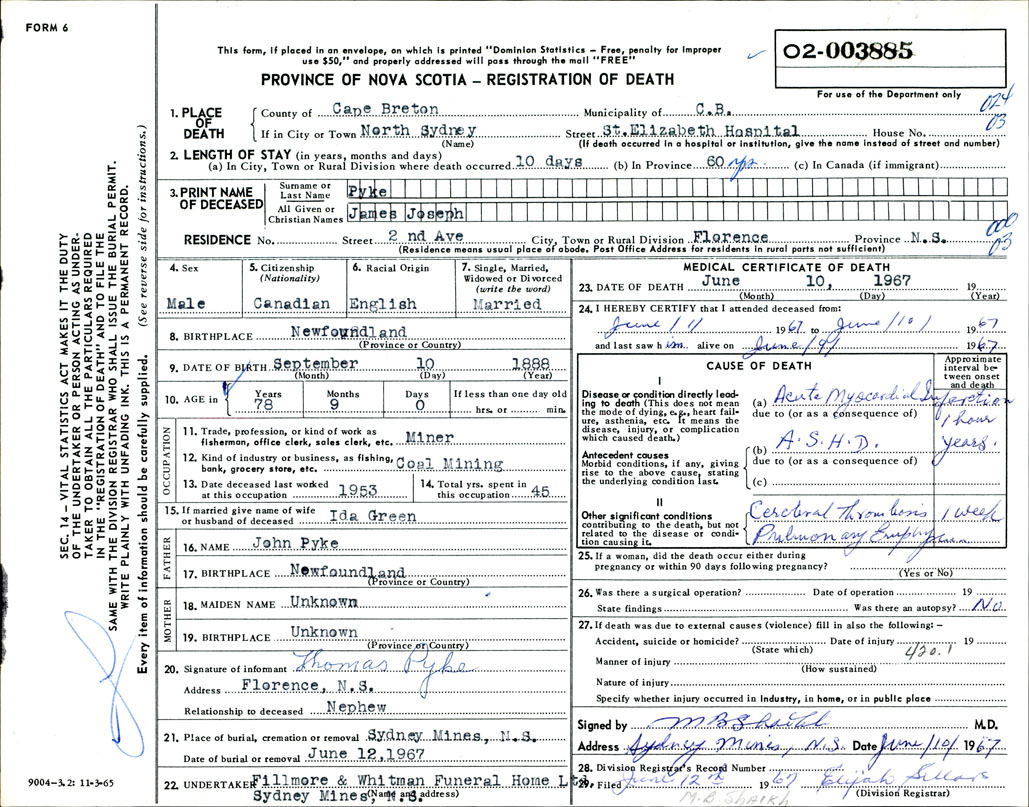 FORM 6
This form, if placed in an envelope, on which is printed "Dominion Statistics – Free, penalty for improper
use $50," and properly addressed will pass through the mail "FREE"
PROVINCE OF NOVA SCOTIA – REGISTRATION OF DEATH
02-003885
For use of the Department only
024
03
1. PLACE OF DEATH
County of Cape Breton Municipality of C.B.
If in City or Town North Sydney Street St.Elizabeth Hospital House No.
(Name) (If death occurred in a hospital or institution, give the name instead of street and number)
2. LENGTH OF STAY (in years, months and days)
(a) In City, Town or Rural Division where death occurred 10 days (b) In Province 60 yrs (c) In Canada (if immigrant)
3. PRINT NAME OF DECEASED
Surname or Last Name Pyke
All Given or Christian Names James Joseph
000
03
RESIDENCE No. Street 2 nd Ave City, Town or Rural Division Florence Province N.S.
(Residence means usual place of abode. Post Office Address for residents in rural parts not sufficient)
4. Sex
Male
5. Citizenship
(Nationality)
Canadian
6. Racial Origin
English
7. Single, Married,
Widowed or Divorced
(write the word)
Married
8. BIRTHPLACE Newfoundland
(Province or Country)
9. DATE OF BIRTH September 10 1888
(Month) (Day) (Year)
10. AGE in Years Months Days If less than one day old
78 9 0 hrs. or min.
OCCUPATION
11. Trade, profession, or kind of work as
fisherman, office clerk, sales clerk, etc. Miner
12. Kind of industry or business, as fishing,
bank, grocery store, etc. Coal Mining
13. Date deceased last worked
at this occupation 1953
14. Total yrs. spent in
this occupation 45
15. If married give name of wife
or husband of deceased Ida Green
FATHER
16. NAME John Pyke
17. BIRTHPLACE Newfoundland
(Province or Country)
MOTHER
18. MAIDEN NAME Unknown
19. BIRTHPLACE Unknown
(Province or Country)
20. Signature of informant Thomas Pyke
Address Florence, N.S.
Relationship to deceased Nephew
21. Place of burial, cremation or removal Sydney Mines, N.S.
Date of burial or removal June 12,1967
22. UNDERTAKER Fillmore & Whitman Funeral Home Ltd
Sydney Mines, N.S.
(Name and address)
MEDICAL CERTIFICATE OF DEATH
23. DATE OF DEATH June 10, 1967 19
(Month) (Day) (Year)
24. I HEREBY CERTIFY that I attended deceased from:
June/1/ 1967 to June/10/ 1967
and last saw him alive on June/9/ 1967
CAUSE OF DEATH
Approximate
interval be-
tween onset
and death
I
Disease or condition directly lead-
ing to death (This does not mean
the mode of dying, e.g., heart fail-
ure, asthenia, etc. It means the
disease, injury, or complication
which caused death.)
(a) Acute Myocardial Infarction 1 hour
due to (or as a consequence of)
Antecedent causes
Morbid conditions, if any, giving
rise to the above cause, stating
the underlying condition last.
(b) A.S.H.D. years.
due to (or as a consequence of)
(c)
II
Other significant conditions
contributing to the death, but not
related to the disease or condi-
tion causing it.
Cerebral Thrombosis 1 week
Pulmonary
25. If a woman, did the death occur either during
pregnancy or within 90 days following pregnancy?
(Yes or No)
26. Was there a surgical operation? Date of operation 19
State findings Was there an autopsy? No
27. If death was due to external causes (violence) fill in also the following: –
Accident, suicide or homicide? Date of injury 19
(State which) 420.1
Manner of injury
(How sustained)
Nature of injury
Specify whether injury occurred in industry, in home, or in public place
Signed by M B Shaikh M.D.
Address Sydney Mines, N.S. Date June/10/ 1967
28. Division Registrar's Record Number
29. Filed June 12nd 1967 Elijah Sellars
M.B. SHAIKH (Division Registrar)
SEC. 14 – VITAL STATISTICS ACT MAKES IT THE DUTY
OF THE UNDERTAKER OR PERSON ACTING AS UNDER-
TAKER TO OBTAIN ALL THE PARTICULARS REQUIRED
IN THE "REGISTRATION OF DEATH" AND TO FILE THE
SAME WITH THE DIVISION REGISTRAR WHO SHALL ISSUE THE BURIAL PERMIT.
WRITE PLAINLY WITH UNFADING INK. THIS IS A PERMANENT RECORD.
Every item of information should be carefully supplied. (See reverse side for instructions.)
9004–3.2: 11-3-65